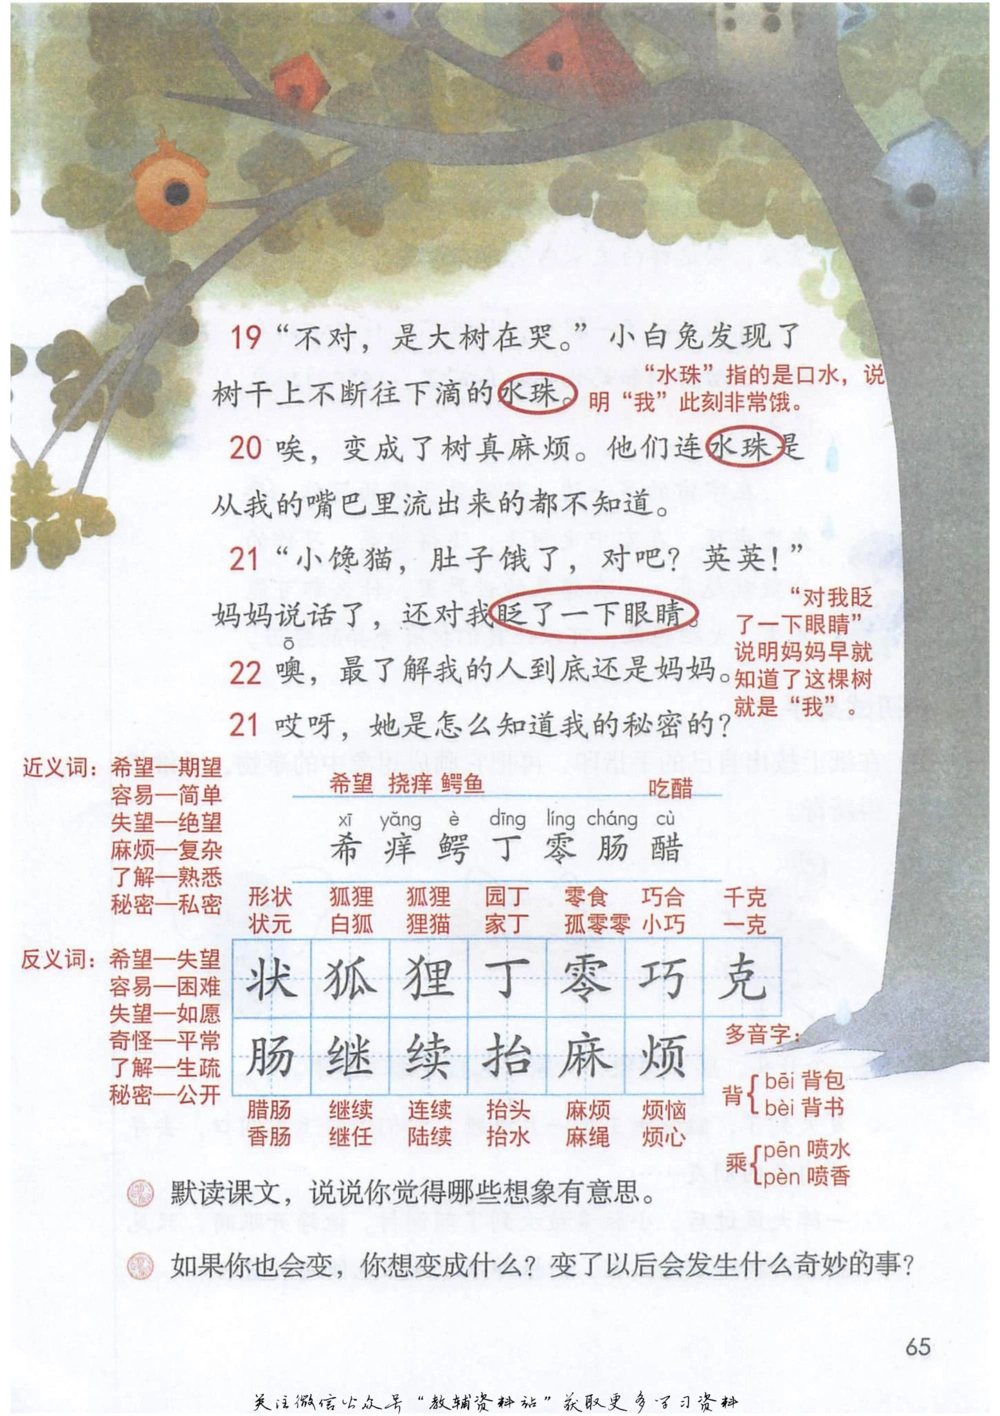 19 “不对，是大树在哭。”小白兔发现了
树干上不断往下滴的水珠。
“水珠”指的是口水，说
明“我”此刻非常饿。
20 唉，变成了树真麻烦。他们连水珠是
从我的嘴巴里流出来的都不知道。
21 “小馋猫，肚子饿了，对吧？英英！”
妈妈说话了，还对我眨了一下眼睛。
“对我眨
了一下眼睛”
说明妈妈早就
知道了这棵树
就是“我”。
ō
22 噢，最了解我的人到底还是妈妈。
21 哎呀，她是怎么知道我的秘密的？
近义词：希望—期望
容易—简单
失望—绝望
麻烦—复杂
了解—熟悉
秘密—私密
反义词：希望—失望
容易—困难
失望—如愿
奇怪—平常
了解—生疏
秘密—公开
希望 挠痒 鳄鱼 吃醋
xī yǎng è dīng líng cháng cù
希 痒 鳄 丁 零 肠 醋
形状 狐狸 狐狸 园丁 零食 巧合 千克
状元 白狐 狸猫 家丁 孤零零 小巧 一克
状 狐 狸 丁 零 巧 克
肠 继 续 抬 麻 烦
腊肠 继续 连续 抬头 麻烦 烦恼
香肠 继任 陆续 抬水 麻绳 烦心
多音字：
背{bēi 背包
bèi 背书
乘{pēn 喷水
pèn 喷香
默读课文，说说你觉得哪些想象有意思。
如果你也会变，你想变成什么？变了以后会发生什么奇妙的事？
65
关注微信公众号“教辅资料站”获取更多学习资料